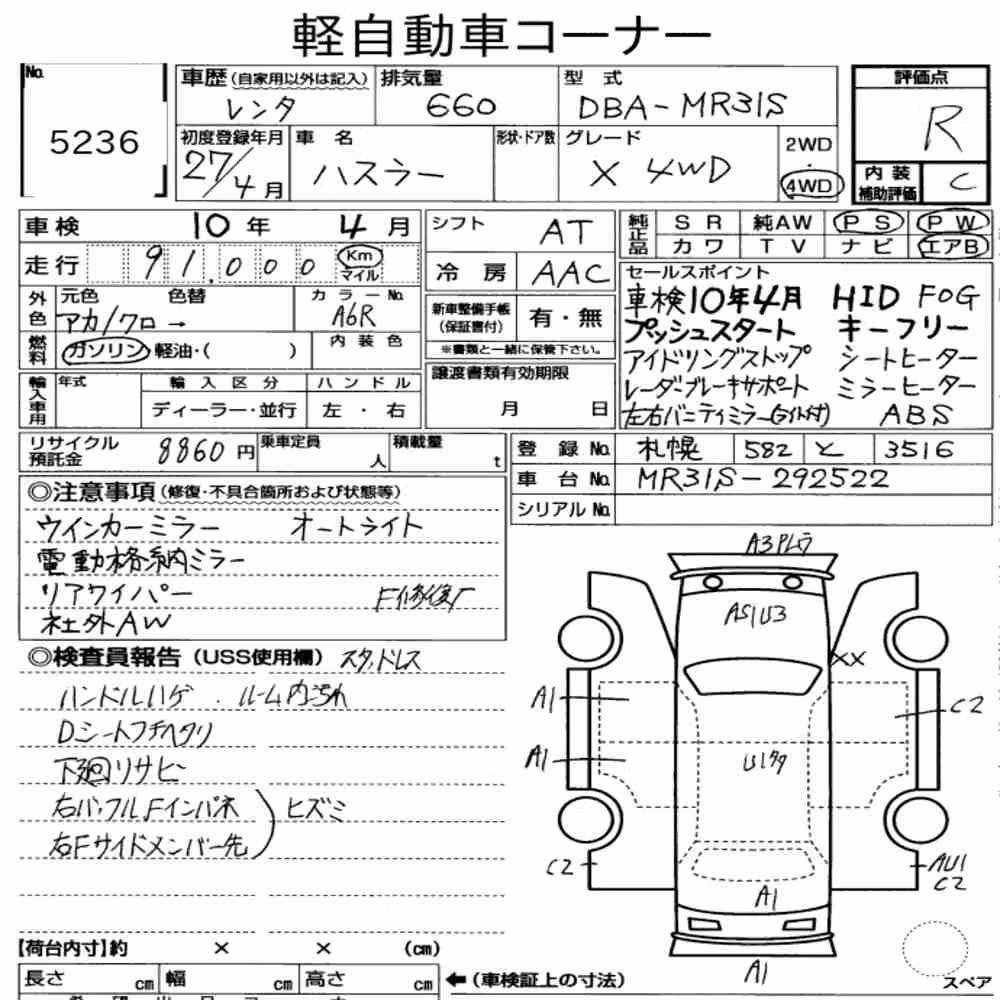 軽自動車コーナー
No. 5236
車歴 (自家用以外は記入) レンタ
排気量 660
型式 DBA-MR31S
評価点 R
初度登録年月 27/4月
車名 ハスラー
形状・ドア数
グレード X 4WD
2WD ・ 4WD
内装補助評価 C
車検 10年 4月
走行 91,000 Km マイル
シフト AT
冷房 AAC
純正品 SR 純AW PS PW
カワ TV ナビ エアB
外色 元色 色替 アカ/クロ→
カラーNo. A6R
燃料 ガソリン・軽油・( )
内装色
新車整備手帳 (保証書付) 有・無
※書類と一緒に保管下さい。
セールスポイント
車検10年4月 HID FOG
プッシュスタート キーフリー
アイドリングストップ シートヒーター
レーダーブレーキサポート ミラーヒーター
左右バニティミラー(ライト付) ABS
輸入車用 年式 輸入区分 ハンドル
ディーラー・並行 左・右
譲渡書類有効期限
月 日
リサイクル預託金 8860円
乗車定員 人
積載量 t
登録No. 札幌 582 と 3516
車台No. MR31S-292522
シリアルNo.
◎注意事項 (修復・不具合箇所および状態等)
ウインカーミラー オートライト
電動格納ミラー
リアワイパー F修復歴
社外AW
◎検査員報告 (USS使用欄) スタッドレス
ハンドルハゲ . ルーム内汚れ
Dシートフチヘタリ
下廻リサビ
右バッフルFインパネ ヒズミ
右Fサイドメンバー先
A3Pレワ
AS1U3
XX
A1
C2
A1
C2
AU1
C2
A1
A1
スペア
【荷台内寸】約 × × (cm)
長さ cm 幅 cm 高さ cm
←(車検証上の寸法)